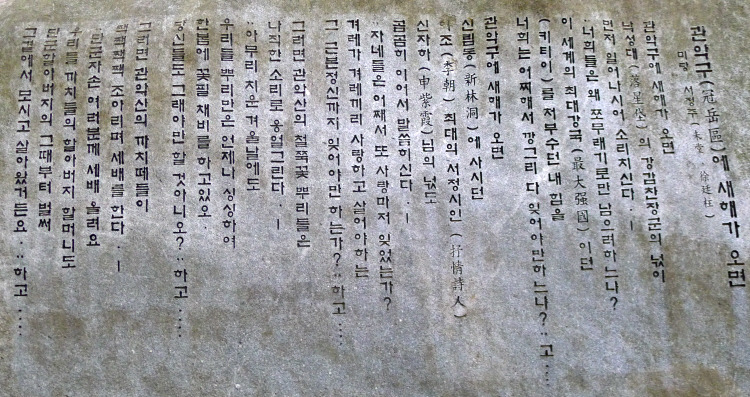 관악구(冠岳區)에 새해가 오면
미당 서정주(未堂 徐廷柱)
관악구에 새해가 오면
낙성대(落星垈)의 강감찬장군의 넋이
먼저 일어나시어 소리치신다. ㅡ
"너희들은 왜 쪼무래기로만 남으려 하느냐?
이 세계의 최대강국(最大强國)이던
(키타이)를 저부수던 내 힘을
너희는 어찌해서 깡그리 다 잊어야만하느냐?" 고‥‥
관악구에 새해가 오면
신림동(新林洞)에 사시던
이조(李朝) 최대의 서정시인(抒情詩人)
신자하(申紫霞)님의 넋도
곰곰히 이어서 말씀히신다. ㅡ
"자네들은 어째서 또 사랑마저 잊었는가?
겨레가 겨레끼리 사랑하고 살어야 하는
그 근본정신까지 잊어야만 하는가?" 하고‥‥
그러면 관악산의 철쭉꽃 뿌리들은
나직한 소리로 웅얼그린다. ㅡ
"아무리 치운 겨울날에도
우리들 뿌리만은 언제나 싱싱하여
한봄에 꽃필 채비를 하고있오.
당신들도 그래야만 할 것 아니오?" 하고‥‥
그러면 관악산의 까치떼들이
깍깍깍깍 조아리며 세배를 한다. ㅡ
"단군자손 여러분께 세배 올려요
우리들 까치들의 할아버지 할머니도
단군할아버지의 그때부터 벌써
그곁에서 모시고 살아왔거든요." 하고‥‥